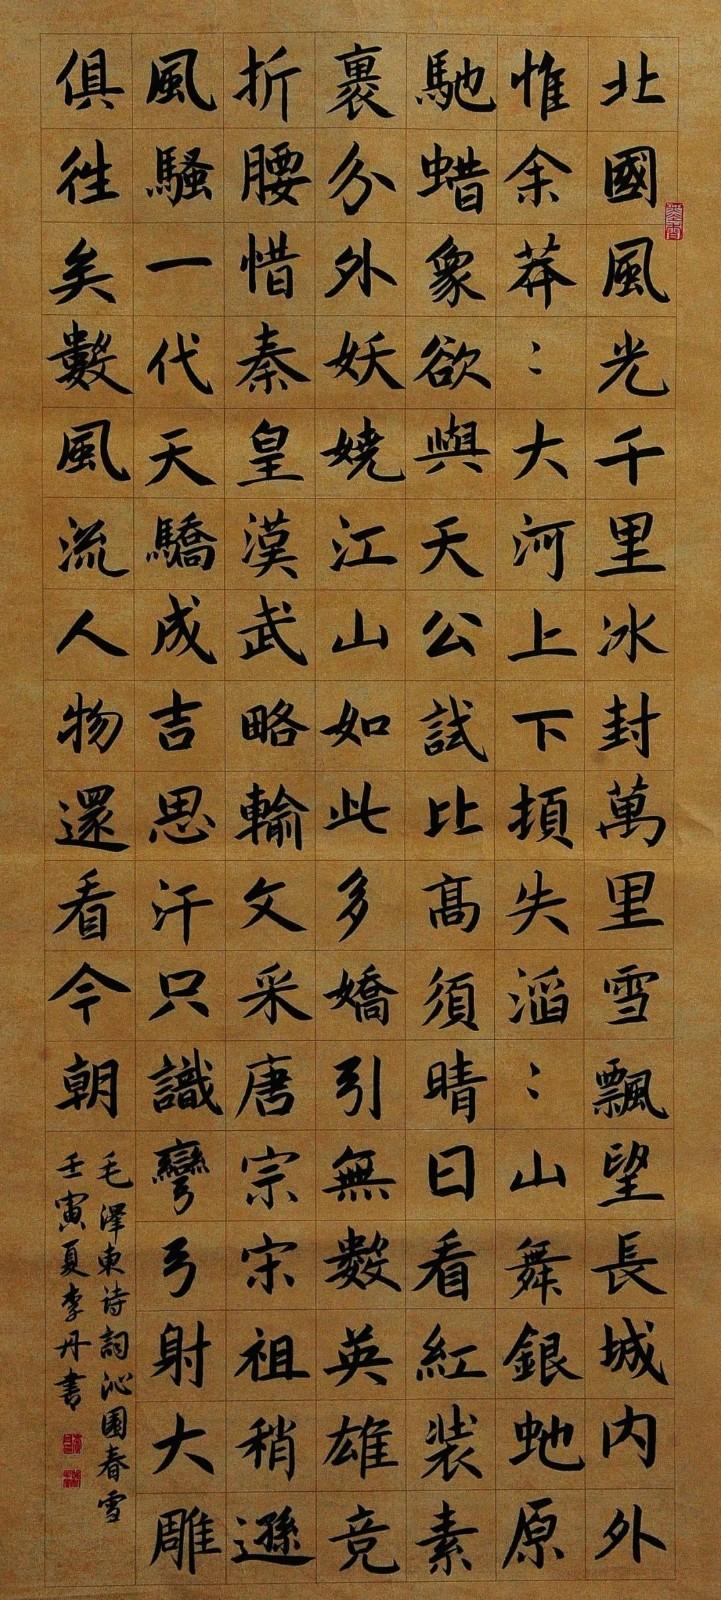 北國風光千里冰封萬里雪飄望長城内外
惟余莽：大河上下頓失滔：山舞銀虵原
馳蜡象欲與天公試比高須晴日看紅装素
裹分外妖嬈江山如此多嬌引無數英雄竞
折腰惜秦皇漢武略輸文采唐宗宋祖稍遜
風騷一代天驕成吉思汗只識彎弓射大雕
俱往矣數風流人物還看今朝
毛澤東诗詞沁園春雪
壬寅夏李丹書